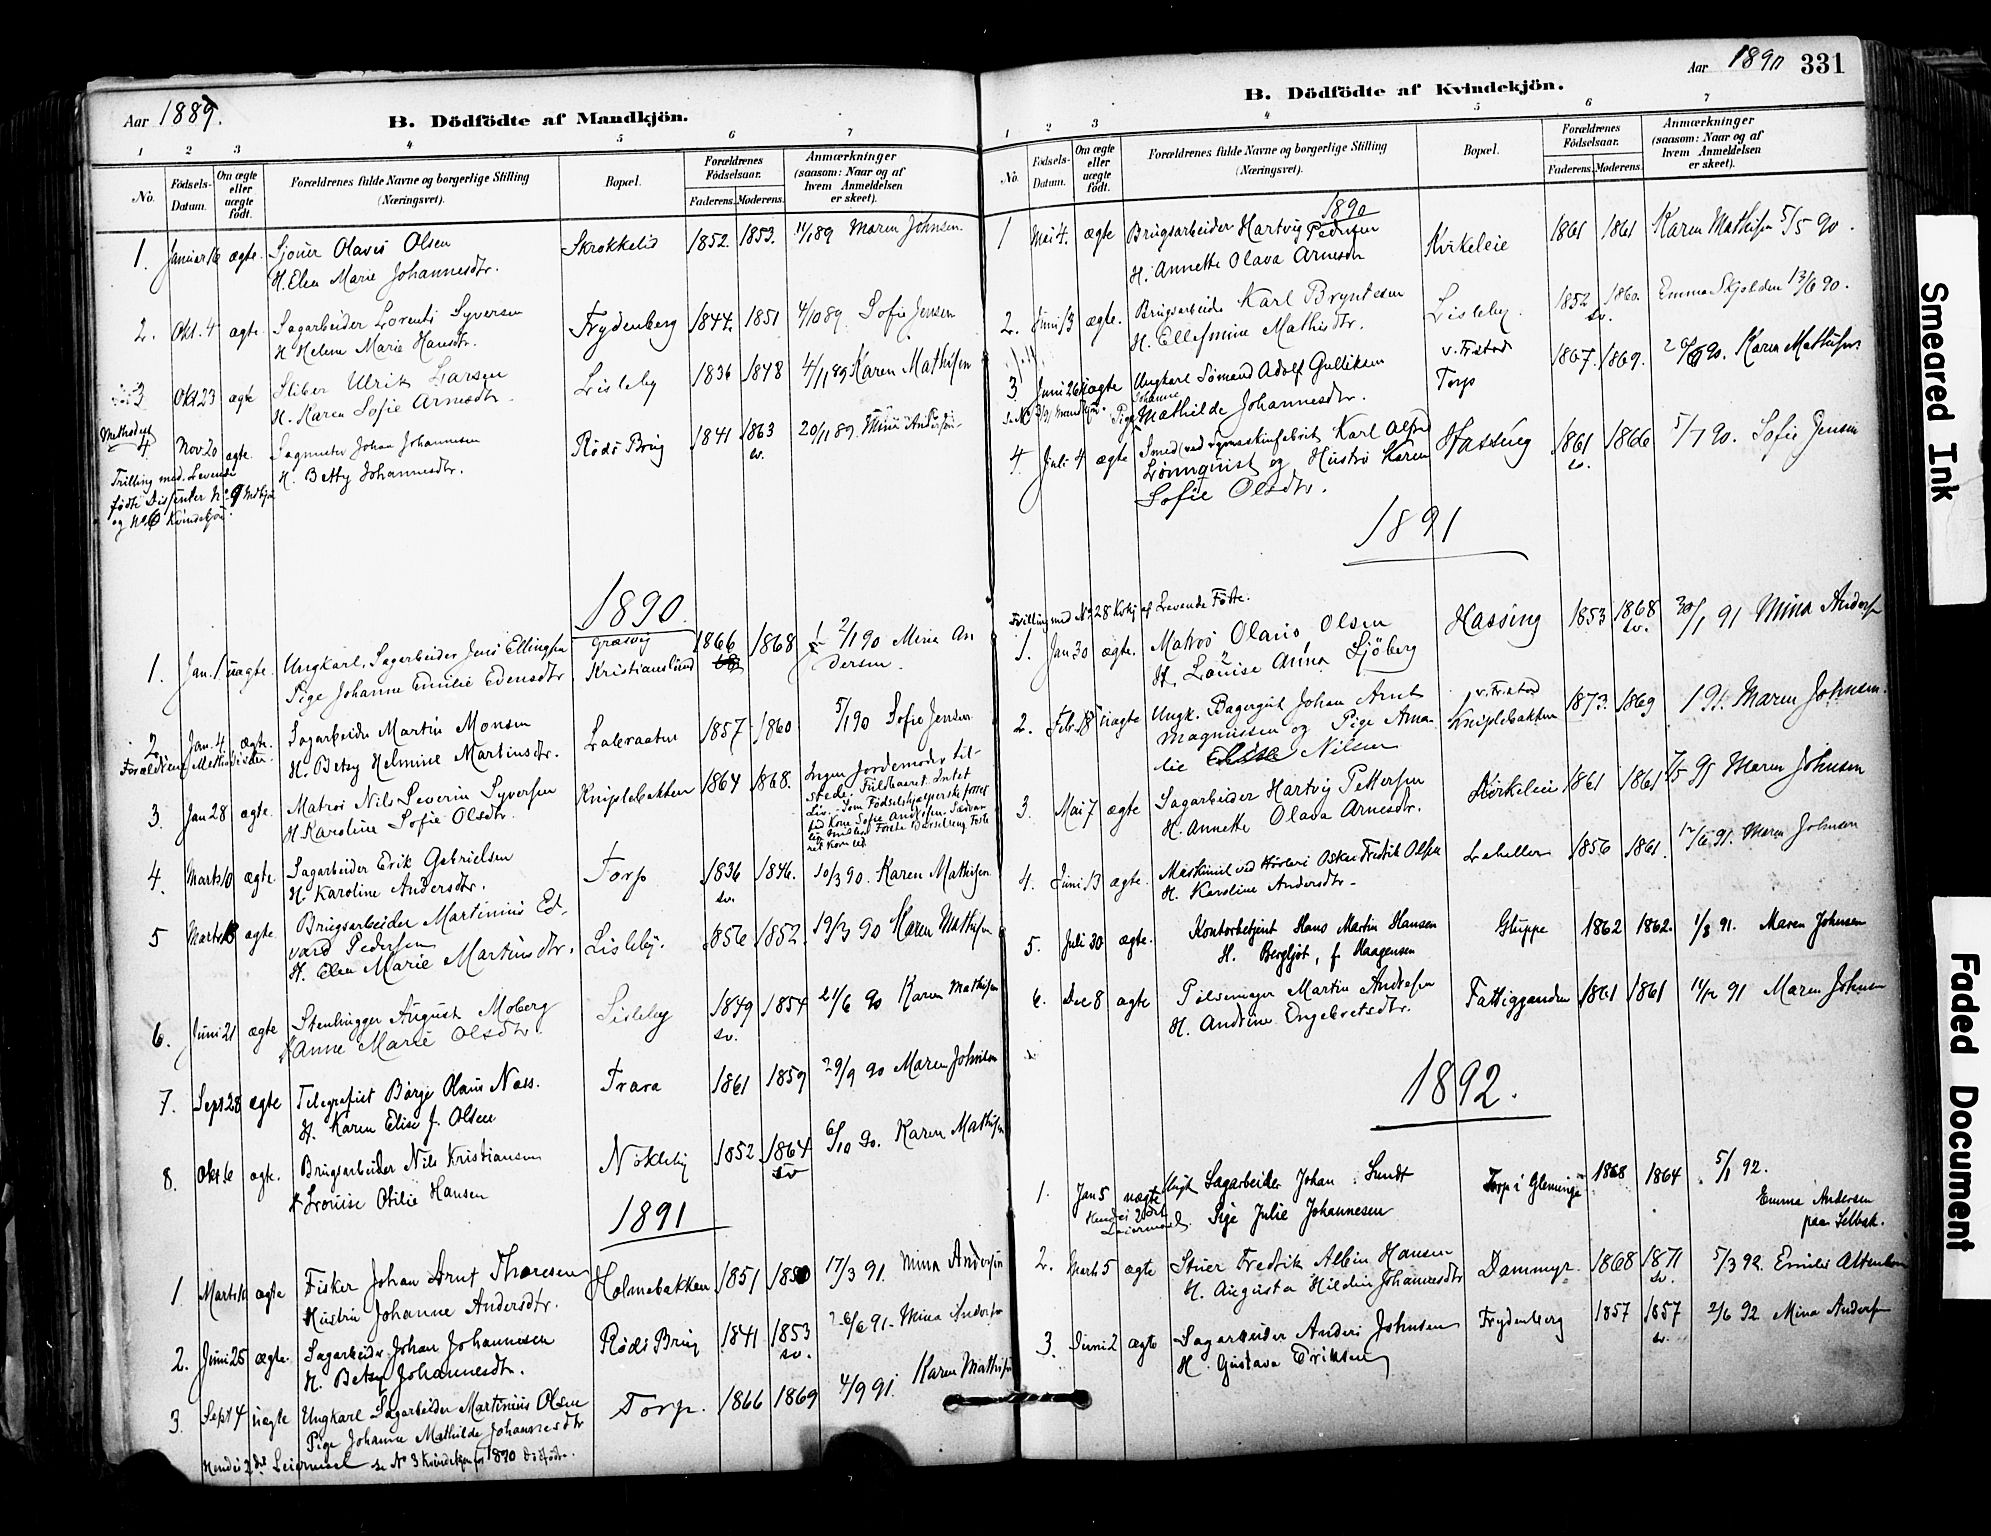 Aar 1889.
B. Dödfödte af Mandkjön.
1 2 3 4 5 6 7
No.
Födsels-Datum.
Om ægte eller uægte födt.
Forældrenes fulde Navne og borgerlige Stilling
(Næringsvei).
Bopæl.
Forældrenes Födselsaar.
Faderens. Moderens.
Anmærkninger
(saasom: Naar og af
hvem Anmeldelsen
er skeet).
1. Januar 16 ægte. Sjouer Olavis Olsen Skrokkelid 1852. 1853. 11/1 89 Maren Johnsen.
H. Elen Marie Johannesdtr.
2. Okt. 4 ægte. Sagarbeider Lorents Syversen Frydenberg 1844. 1851 4/10 89. Sofie Jensen
H. Helene Marie Hansdtr.
3 Okt 23 ægte Sliber Ulrik Larsen Lisleby 1836 1848 4/11 89 Karen Mathisen
H. Karen Sofie Arnesdtr.
4 Nov. 20 ægte. Sagmester Johan Johannesen Röds Brug 1841 1863 20/11 89. Mina Andersen
sv.
H. Betty Johannesdtr.
Trilling med Levende
födte Dissenter No 9 Mdkjön
og No. 6 Kvindekjön.
1890.
1. Jan. 1 uægte. Ungkarl, Sagarbeider Jens Ellingsen Græsvig 1866 1868 2/1 90 Mina An
dersen.
Pige Johanne Emilie Edensdtr Kristianslund
2. Jan. 4. ægte. Sagarbeider Martin Monsen Laberaaten 1857 1860 5/1 90 Sofie Jensen
H. Betsy Helmine Martinsdtr.
3. Jan 28 ægte. Matros Nils Severin Syversen Kniplebakken 1864 1868. Ingen Jordemoder til-
stede. Fuldbaaret. Intet
Liv. Som Födselshjælperske
H. Karoline Sofie Olsdtr.
4. Marts 10 ægte. Sagarbeider Erik Gabrielsen Torp 1836 1846. 10/3 90. Karen Mathisen
sv.
H. Karoline Andersdtr.
5 Marts 18 ægte. Brugsarbeider Martinius Ed-
vard Pedersen Lisleby. 1856 1852. 19/3 90 Karen Mathisen
H. Elen Marie Martinsdtr.
6. Juni 21 ægte Stenhugger August Moberg Lisleby 1849 1854 21/6 90 Karen Mathisen
sv.
Anne Marie Olsdtr.
7. Sept 28 ægte Telegrafist Börge Olaus Næss. Trara 1861 1859 29/9 90 Maren Johnsen
H. Karen Elise J. Olsen
8. Okt 6 ægte. Brugsarbeider Nils Kristiansen Nökleby 1852 1864 6/10 90. Karen Mathisen
sv
Lovise Otilie Hansen
1891
1. Marts 16 ægte Fisker Johan Arnt Thoresen Holmebakken 1851 1850 17/3 91. Mina Andersen
Hustru Johanne Andersdtr.
2. Juni 25 ægte. Sagarbeider Johan Johannesen Röds Brug 1841 1853 26/6 91. Mina Andersen
sv.
H. Betsy Johannesdtr.
3. Sept 4 uægte Ungkarl Sagarbeider Martinius Olsen Torp. 1866 1869 4/9 91. Karen Mathisen
Pige Johanne Mathilde Johannesdtr
Hendes 2det Leiermaal se No 3 Kvindekjøn for 1890 Dödfödte.
Aar 1890 331
B. Dödfödte af Kvindekjön.
1 2 3 4 5 6 7
No.
Födsels-Datum.
Om ægte eller uægte födt.
Forældrenes fulde Navne og borgerlige Stilling
(Næringsvei).
Bopæl.
Forældrenes Födselsaar.
Faderens. Moderens.
Anmærkninger
(saasom: Naar og af
hvem Anmeldelsen
er skeet).
1890
1 Mai 4. ægte Brugsarbeider Hartvig Pedersen Kirkeleie 1861 1861 Karen Mathisen 5/5 90.
H. Annette Olava Arnesdtr
2. Juni 13 ægte. Brugsarbeider Karl Bryntesen Lisleby. 1852 1860. Emma Skjolden 13/6 90.
sv.
H. Ellefmine Mathisdtr.
3 Juni 26 uægte Ungkarl Sömand Adolf Gulliksen v. Frstad 1867. 1869. 26/6 90. Karen Mathisen
Pige Johanne Mathilde Johannesdtr. Torp
4. Juli 4 ægte Smed ved Symaskinfabrik Karl Alfred Hassing 1861 1866 5/7 90. Sofie Jensen
sv.
Lönnquist og Hustru Karen
Sofie Olsdtr.
1891
Tvilling med No. 28 Kvkj af Levende Födte.
1. Jan 30 ægte. Matros Olaus Olsen Hassing 1853 1868 30/1 91 Mina Andersen
sv.
H. Louise Anna Sjöberg
2. Febr. 18 uægte Ungk. Bagergut Johan Arnt v. Fr.stad 1873. 1869 91. Maren Johnsen.
Magnussen og Pige Ama- Kniplebakken
lie Nilsen
3. Mai 7 ægte Sagarbeider Hartvig Pettersen Kirkeleie 1861 1861 7/5 91 Maren Johnsen
H. Annette Olava Arnesdtr.
4. Juni 13 ægte. Maskinist ved Oskar Fredrik Olsen Lahellen 1856 1861. 1/6 91. Maren Johnsen
H. Karoline Andersdtr.
5. Juli 30 ægte. Kontorbetjent Hans Martin Hansen Gluppe 1862 1862. 1/8 91. Maren Johnsen
H. Bergljot, f. Haagensen
6. Dec 8 ægte Pölsemager Martin Andresen Fattiggaarden 1861 1861 14/12 91 Maren Johnsen
H. Andrine Engebretsdtr.
1892.
1. Jan 5 uægte Ugift Sagarbeider Johan Lundt Torp i Glemminge 1868 1864 5/1 92.
Hendes 2det
Leiermaal. Pige Julie Johannesen Emma Andersen
paa Selbak.
2. Marts 5 ægte Stuer Fredrik Albin Hansen Dammyr. 1868 1871 5/3 92. Emilie
sv.
H. Augusta Hildin Johannesdtr
3. Juni 2 ægte Sagarbeider Anders Johnsen Frydenberg 1857 1857 2/6 92 Mina Andersen
sv.
H. Gustava Eriksen
Smeared Ink
Faded Document